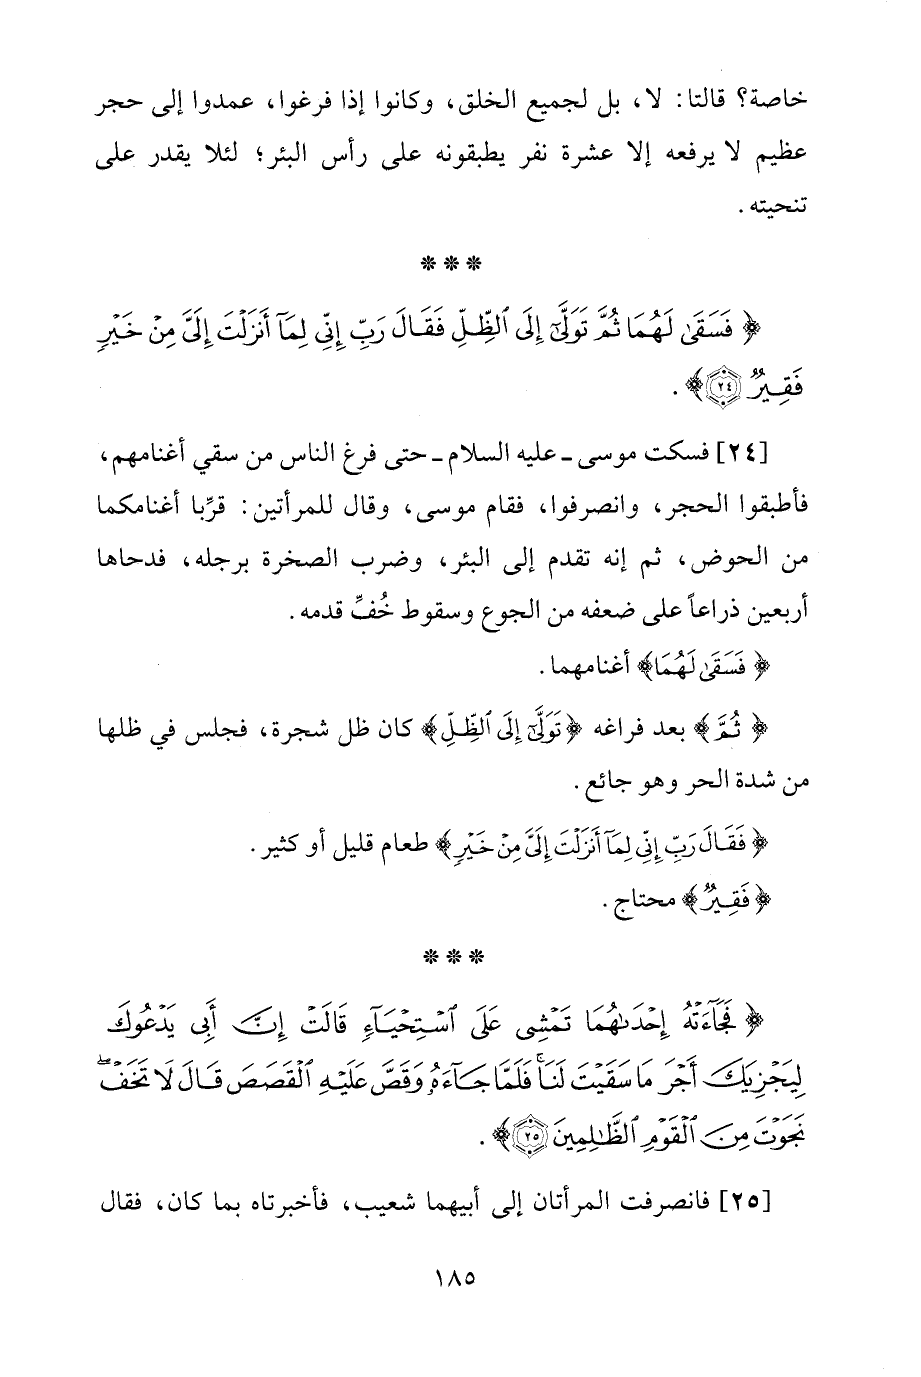 خاصة؟ قالتا: لا، بل لجميع الخلق، وكانوا إذا فرغوا، عمدوا إلى حجر
عظيم لا يرفعه إلا عشرة نفر يطبقونه على رأس البئر؛ لئلا يقدر على
تنحيته.
* * *
﴿ فَسَقَىٰ لَهُمَا ثُمَّ تَوَلَّىٰٓ إِلَى ٱلظِّلِّ فَقَالَ رَبِّ إِنِّي لِمَآ أَنزَلْتَ إِلَيَّ مِنْ خَيْرٍ
فَقِيرٌ ﴿٢٤﴾ ﴾.
[٢٤] فسكت موسى - عليه السلام - حتى فرغ الناس من سقي أغنامهم،
فأطبقوا الحجر، وانصرفوا، فقام موسى، وقال للمرأتين: قرِّبا أغنامكما
من الحوض، ثم إنه تقدم إلى البئر، وضرب الصخرة برجله، فدحاها
أربعين ذراعاً على ضعفه من الجوع وسقوط خُفِّ قدمه.
﴿ فَسَقَىٰ لَهُمَا ﴾ أغنامهما.
﴿ ثُمَّ ﴾ بعد فراغه ﴿ تَوَلَّىٰٓ إِلَى ٱلظِّلِّ ﴾ كان ظل شجرة، فجلس في ظلها
من شدة الحر وهو جائع.
﴿ فَقَالَ رَبِّ إِنِّي لِمَآ أَنزَلْتَ إِلَيَّ مِنْ خَيْرٍ ﴾ طعام قليل أو كثير.
﴿ فَقِيرٌ ﴾ محتاج.
* * *
﴿ فَجَآءَتْهُ إِحْدَىٰهُمَا تَمْشِي عَلَى ٱسْتِحْيَآءٍ قَالَتْ إِنَّ أَبِي يَدْعُوكَ
لِيَجْزِيَكَ أَجْرَ مَا سَقَيْتَ لَنَا ۚ فَلَمَّا جَآءَهُۥ وَقَصَّ عَلَيْهِ ٱلْقَصَصَ قَالَ لَا تَخَفْ ۖ
نَجَوْتَ مِنَ ٱلْقَوْمِ ٱلظَّٰلِمِينَ ﴿٢٥﴾ ﴾.
[٢٥] فانصرفت المرأتان إلى أبيهما شعيب، فأخبرتاه بما كان، فقال
١٨٥